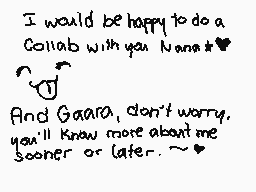 I would be happy to do a
Collab with you Nana*♥
And Gaara, don't worry,
you'll know more about me
sooner or later. ~♥